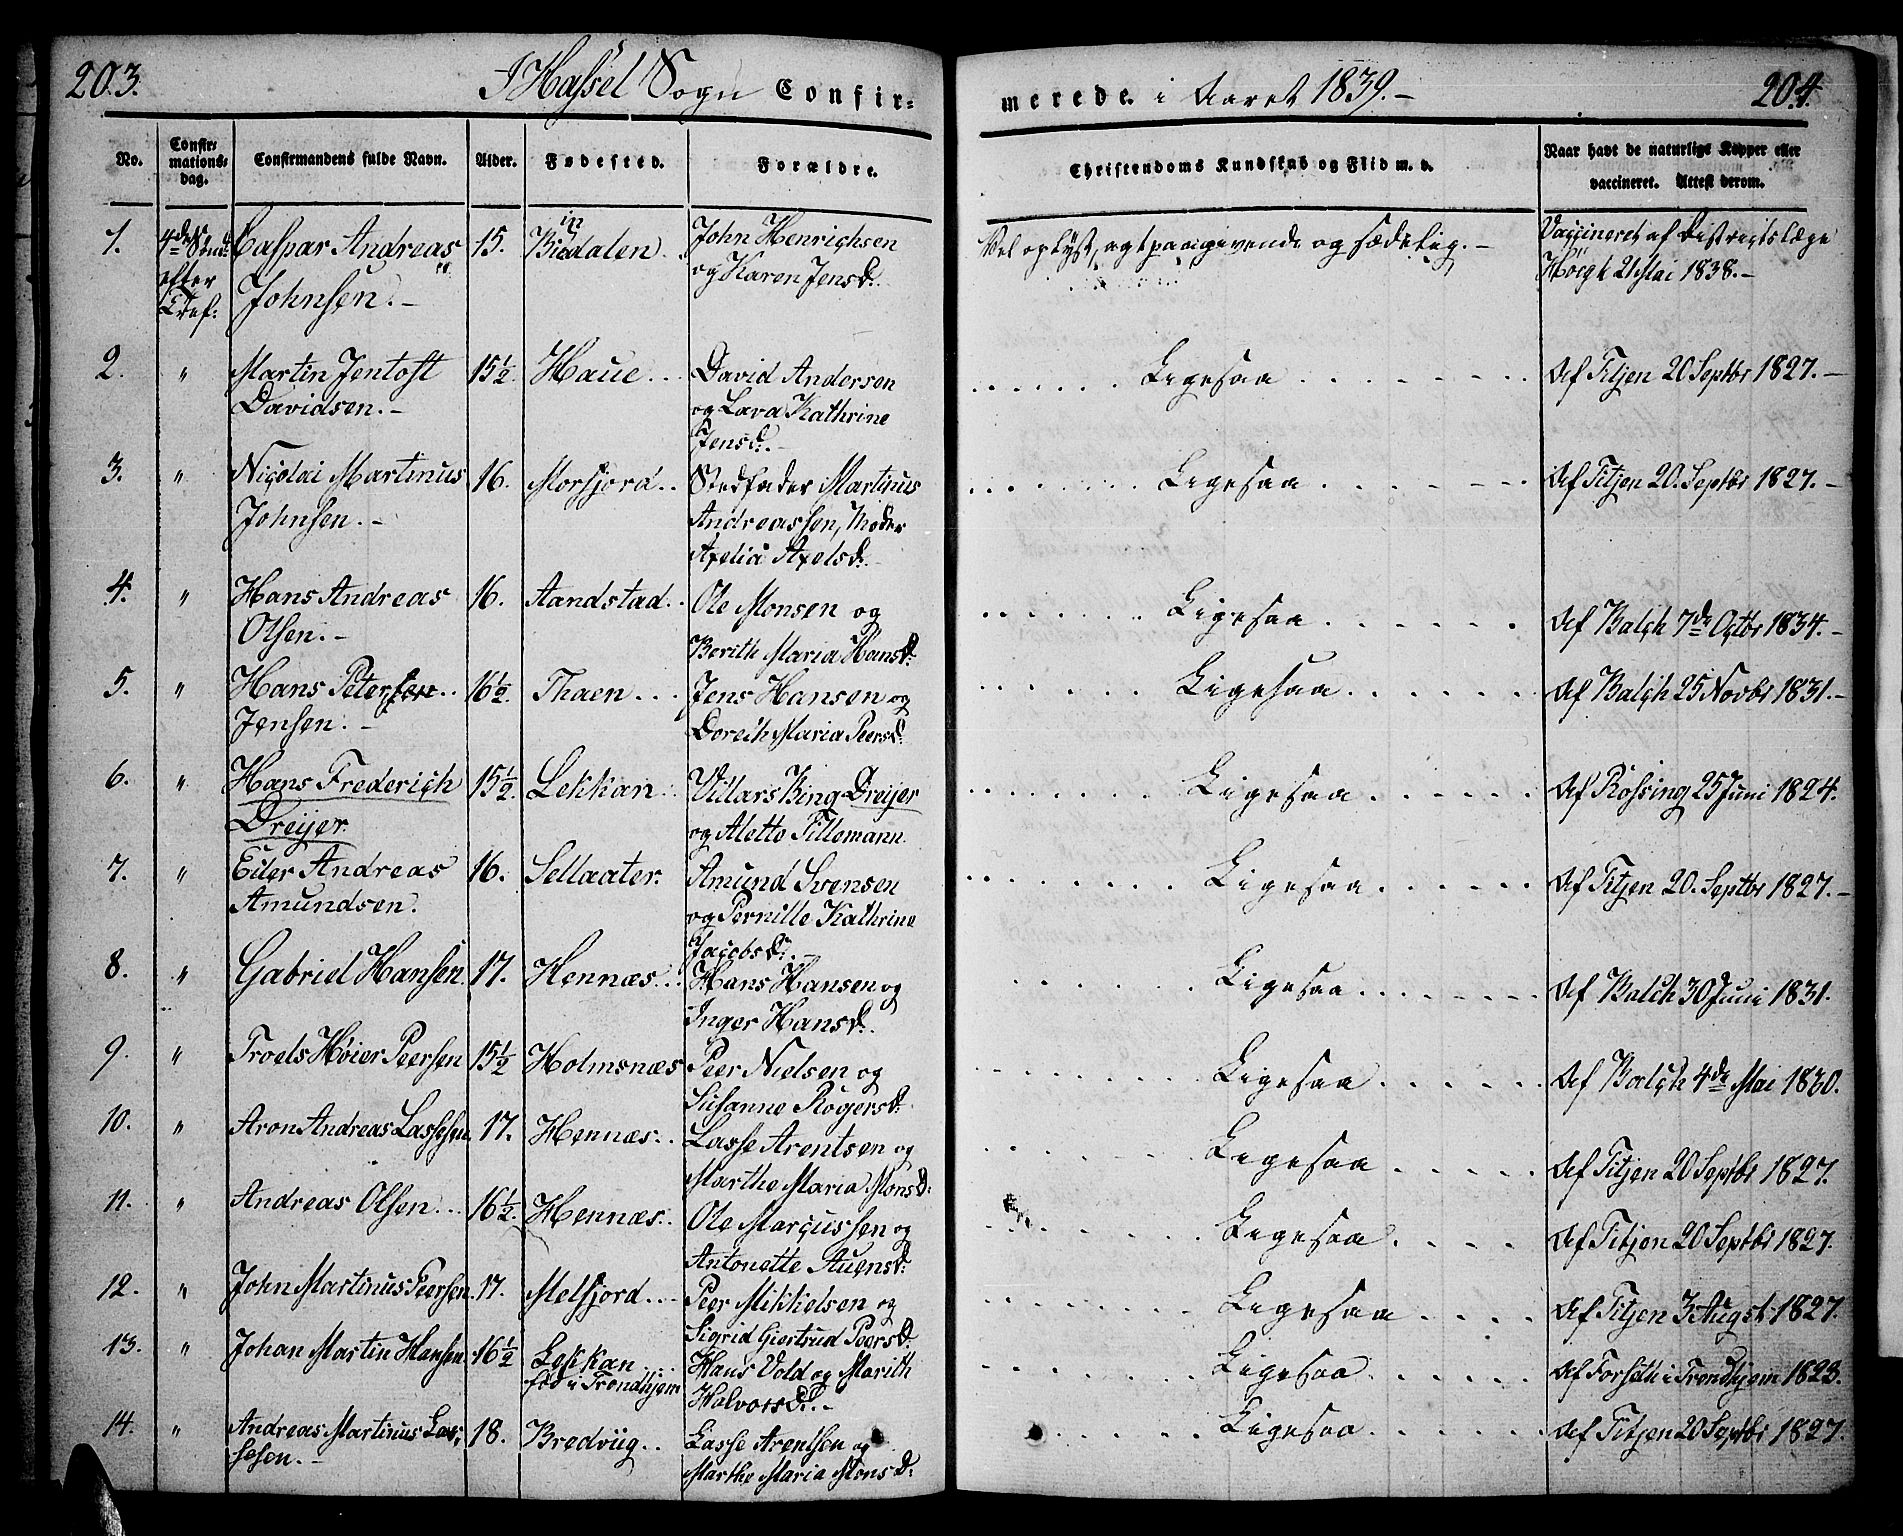 203.
I Hassel Sogn Confir-
No.
Confir-
mations-
dag.
Confirmandens fulde Navn.
Alder.
Fødested.
Forældre.
1.
4de Sønd:
efter
Tref:
Caspar Andreas
Johnsen.-
15.
John Henrichsen
og Karen Jensd.
2.
"
Martin Jentoft
Davidsen.-
15½.
Haue...
David Andersen
og Lava Kathrine
Jensd:-
3.
"
Nicolai Martinus
Johnsen.-
16.
Morfjord..
Stedfader Martinus
Andreassen, Moder
Axelia Axelsd.
4.
"
Hans Andreas
Olsen.-
16.
Aandstad..
Ole Monsen og
Berith Maria Hansd:
5.
"
Hans Petersen..
Jensen.-
16½.
Thaen...
Jens Hansen og
Doreth Maria Peersd:
6.
"
Hans Frederich
Dreijer.
15½.
Lekkan..
Villars King Dreijer
og Aletto Tillemann.
7.
"
Eiler Andreas
Amundsen.
16.
Sellaater.
Amund Svensen
og Pernille Kathrine
Jacobsd:
8.
"
Gabriel Hansen.
17.
Hennæs...
Hans Hansen og
Inger Hansd.
9.
"
Troels Høier Peersen
15½
Holmsnæs
Peer Nielsen og
Susanne Rogersd:
10.
"
Aron Andreas Lassesen.
17.
Hennæs...
Lasse Arentsen og
Marthe Maria Monsd:
11.
"
Andreas Olsen...
16½.
Hennæs..
Ole Marcussen og
Antonette Auensd:
12.
"
John Martinus Peersen.
17.
Melfjord....
Peer Mikkelsen og
Sigrid Giertrud Peersd.
13.
"
Johan Martin Hansen.
16½
Lekkan....
fød i Trondhjem
Hans Vold og Marith
Halvorsd:-
14.
"
Andreas Martinus Las-
sesen.-
18.
Bredviig..
Lasse Arentsen og
Marthe Maria Monsd:
merede i Aaret 1839.-
204.
Christendoms Kundskab og Flid m. v.
Naar havt de naturlige Kopper eller
vaccineret. Attest derom.
Vel oplyst, agtpaagivende og sædelig.-
Vaccineret af Distrigtslæge
21 Mai 1838.-
Ligesaa
Af Titjen 20 Septbr 1827.-
Ligesaa
Af Titjen 20. Septbr 1827.-
Ligesaa
Af Balch 7de Octbr 1834.-
Ligesaa
Af Balch 25 Novbr 1831.-
Ligesaa
Af Rossing 25 Juni 1824.
Ligesaa
Af Titjen 20. Septbr 1827.-
Ligesaa
Af Balch 30 Juni 1831.
Ligesaa
Af Balch 4de Mai 1830.
Ligesaa
Af Titjen 20 Septbr 1827.
Ligesaa
Af Titjen 20 Septbr 1827.
Ligesaa
Af Titjen 3 Augst 1827.
Ligesaa
Af Forseth i Trondhjem 1823.
Ligesaa
Af Titjen 20 Septbr 1827.